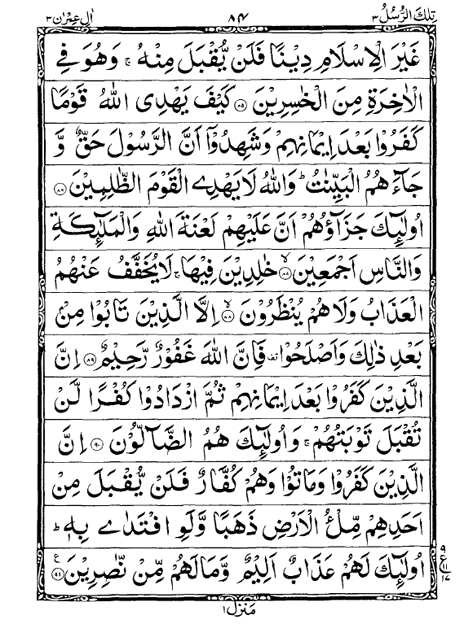 تِلْكَ الرُّسُلُ ٣ ٨٤ اٰلِ عِمْرٰن ٣
غَيْرَ الْاِسْلَامِ دِيْنًا فَلَنْ يُّقْبَلَ مِنْهُ ۚ وَهُوَ فِي
الْاٰخِرَةِ مِنَ الْخٰسِرِيْنَ ﴿٨٥﴾ كَيْفَ يَهْدِى اللّٰهُ قَوْمًا
كَفَرُوْا بَعْدَ اِيْمَانِهِمْ وَشَهِدُوْٓا اَنَّ الرَّسُوْلَ حَقٌّ وَّ
جَآءَهُمُ الْبَيِّنٰتُ ؕ وَاللّٰهُ لَا يَهْدِى الْقَوْمَ الظّٰلِمِيْنَ ﴿٨٦﴾
اُولٰٓئِكَ جَزَآؤُهُمْ اَنَّ عَلَيْهِمْ لَعْنَةَ اللّٰهِ وَالْمَلٰٓئِكَةِ
وَالنَّاسِ اَجْمَعِيْنَ ﴿٨٧﴾ خٰلِدِيْنَ فِيْهَا ۚ لَا يُخَفَّفُ عَنْهُمُ
الْعَذَابُ وَلَا هُمْ يُنْظَرُوْنَ ﴿٨٨﴾ اِلَّا الَّذِيْنَ تَابُوْا مِنْۢ
بَعْدِ ذٰلِكَ وَاَصْلَحُوْا ۟ فَاِنَّ اللّٰهَ غَفُوْرٌ رَّحِيْمٌ ﴿٨٩﴾ اِنَّ
الَّذِيْنَ كَفَرُوْا بَعْدَ اِيْمَانِهِمْ ثُمَّ ازْدَادُوْا كُفْرًا لَّنْ
تُقْبَلَ تَوْبَتُهُمْ ۚ وَاُولٰٓئِكَ هُمُ الضَّآلُّوْنَ ﴿٩٠﴾ اِنَّ
الَّذِيْنَ كَفَرُوْا وَمَاتُوْا وَهُمْ كُفَّارٌ فَلَنْ يُّقْبَلَ مِنْ
اَحَدِهِمْ مِّلْءُ الْاَرْضِ ذَهَبًا وَّلَوِ افْتَدٰى بِهٖ ؕ
اُولٰٓئِكَ لَهُمْ عَذَابٌ اَلِيْمٌ وَّمَا لَهُمْ مِّنْ نّٰصِرِيْنَ ﴿٩١﴾ ع
٩
ع ١١
١٧
مَنْزِل ١